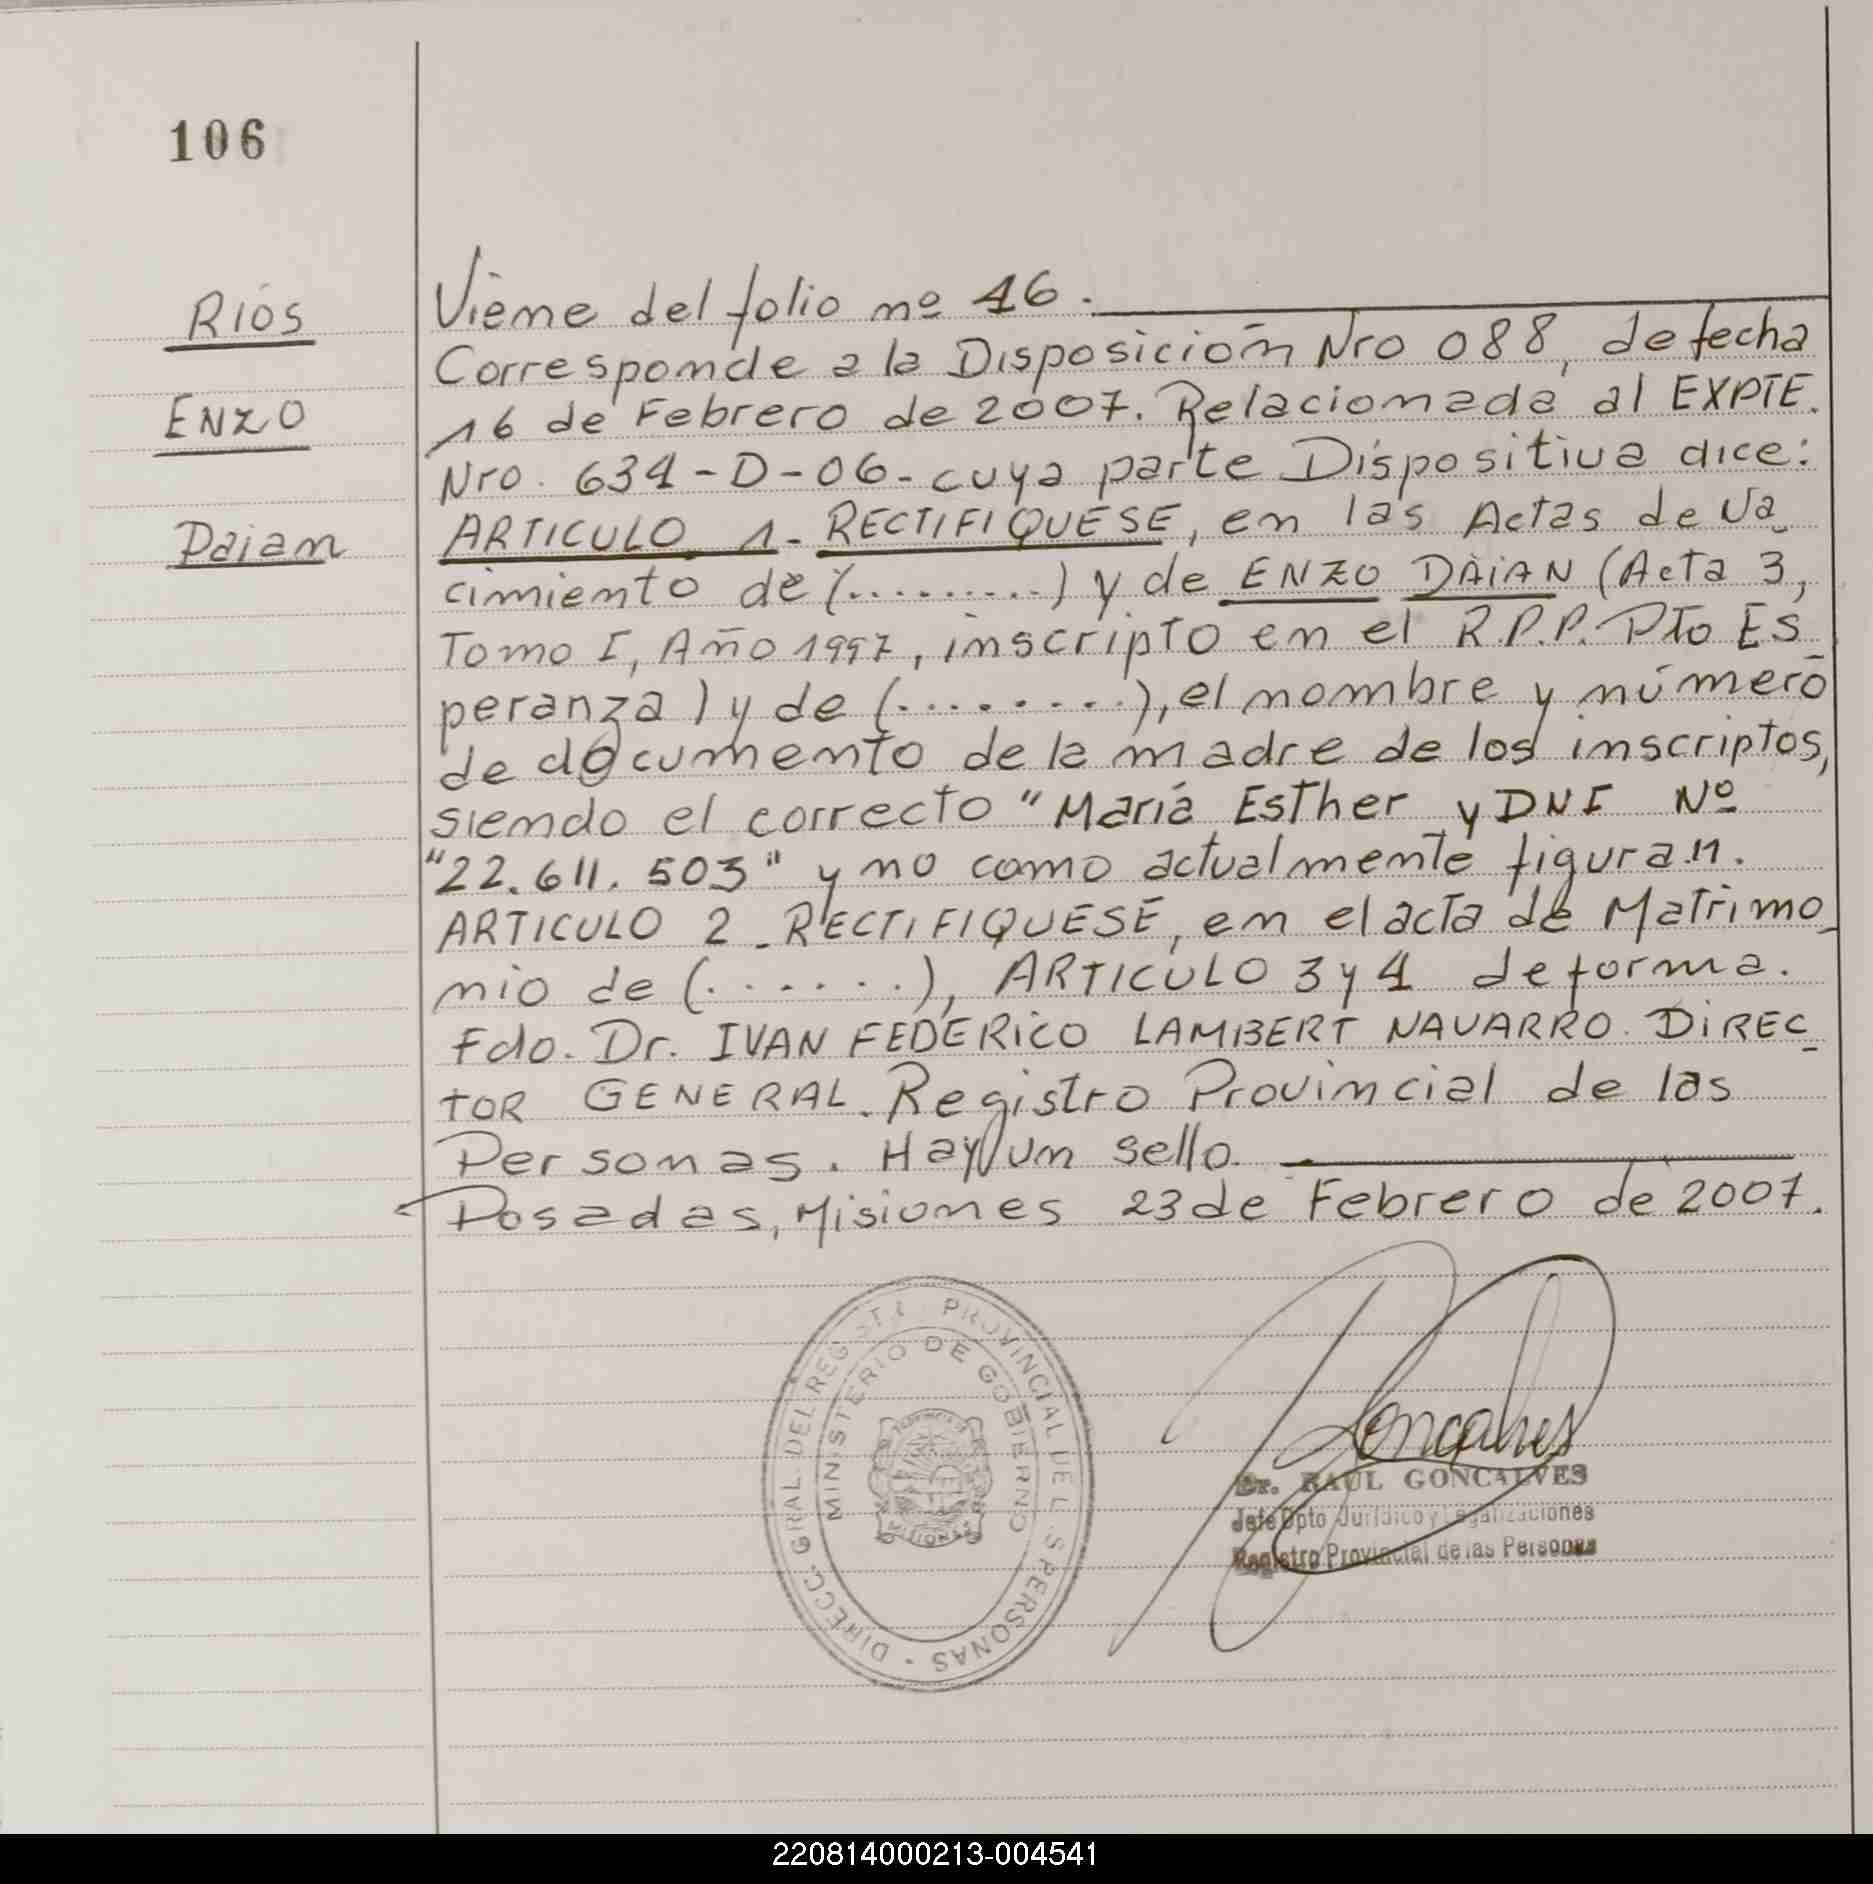 106
RIOS
ENZO
Daian
Viene del folio nº 46.
Corresponde a la Disposición Nro 088, de fecha
16 de Febrero de 2007. Relacionada al EXPTE.
Nro. 634-D-06- cuya parte Dispositiva dice:
ARTICULO 1- RECTIFIQUESE, en las Actas de Na
cimiento de (.........) y de ENZO DAIAN (Acta 3,
Tomo I, Año 1997, inscripto en el R.P.P. Pto Es
peranza) y de (........), el nombre y número
de documento de la madre de los inscriptos,
siendo el correcto "María Esther y DNI Nº
"22.611.503" y no como actualmente figuran.
ARTICULO 2- RECTIFIQUESE, en el acta de Matrimo_
nio de (......), ARTICULO 3 y 4 de forma.
Fdo. Dr. IVAN FEDERICO LAMBERT NAVARRO. DIREC_
TOR GENERAL. Registro Provincial de las
Personas. Hay un sello.
Posadas, Misiones 23 de Febrero de 2007.
DIRECC. GRAL DEL REGISTR PROVINCIAL DE L S PERSONAS -
MINISTERIO DE GOBIERNO
PROVINCIA DE
MISIONES
Goncalves
Dr. RAUL GONCALVES
Jefe Dpto Jurídico y Legalizaciones
Registro Provincial de las Personas
220814000213-004541